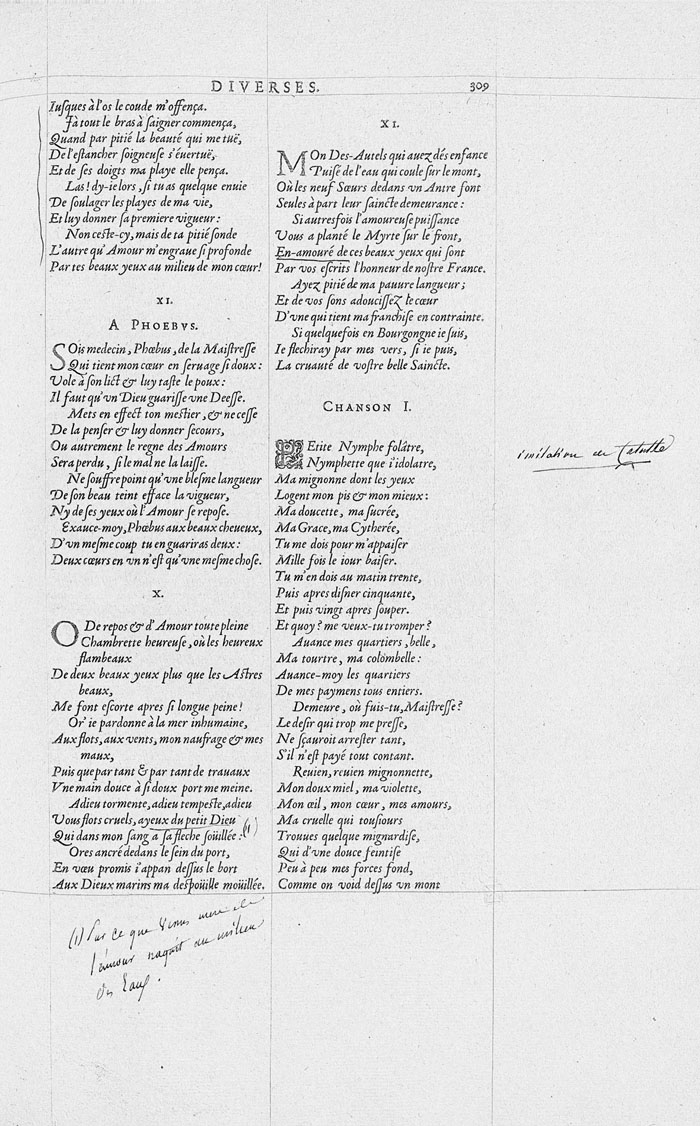 DIVERSES. 309
Iusques à l'os le coude m'offença.
Jà tout le bras à saigner commença,
Quand par pitié la beauté qui me tuë,
De l'estancher soigneuse s'évertuë,
Et de ses doigts ma playe elle pença.
Las! dy-ie lors, si tu as quelque enuie
De soulager les playes de ma vie,
Et luy donner sa premiere vigueur:
Non ceste-cy, mais de ta pitié sonde
L'autre qu'Amour m'engraue si profonde
Par tes beaux yeux au milieu de mon cœur!
XI.
A PHOEBVS.
SOis medecin, Phœbus, de la Maistresse
Qui tient mon cœur en seruage si doux:
Vole à son lict & luy taste le poux:
Il faut qu'vn Dieu guarisse vne Deesse.
Mets en effect ton mestier, & ne cesse
De la penser & luy donner secours,
Ou autrement le regne des Amours
Sera perdu, si le mal ne la laisse.
Ne souffre point qu'vne blesme langueur
De son beau teint efface la vigueur,
Ny de ses yeux où l'Amour se repose.
Exauce-moy, Phœbus aux beaux cheueux,
D'vn mesme coup tu en guariras deux:
Deux cœurs en vn n'est qu'vne mesme chose.
X.
O De repos & d'Amour toute pleine
Chambrette heureuse, où les heureux
flambeaux
De deux beaux yeux plus que les Astres
beaux,
Me font escorte apres si longue peine!
Or' ie pardonne à la mer inhumaine,
Aux flots, aux vents, mon naufrage & mes
maux,
Puis que par tant & par tant de trauaux
Vne main douce à si doux port me meine.
Adieu tormente, adieu tempeste, adieu
Vous flots cruels, ayeux du petit Dieu
Qui dans mon sang a sa fleche soüillée: (1)
Ores ancré dedans le sein du port,
En vœu promis i'appan dessus le bort
Aux Dieux marins ma despoüille moüillée.
XI.
MOn Des-Autels qui auez dés enfance
Puisé de l'eau qui coule sur le mont,
Où les neuf Sœurs dedans vn Antre font
Seules à part leur saincte demeurance:
Si autresfois l'amoureuse puissance
Vous a planté le Myrte sur le front,
En-amouré de ces beaux yeux qui sont
Par vos escrits l'honneur de nostre France.
Ayez pitié de ma pauure langueur;
Et de vos sons adoucissez le cœur
D'vne qui tient ma franchise en contrainte.
Si quelquefois en Bourgongne ie suis,
Ie flechiray par mes vers, si ie puis,
La cruauté de vostre belle Saincte.
CHANSON I.
PEtite Nymphe folâtre,
Nymphette que i'idolatre,
Ma mignonne dont les yeux
Logent mon pis & mon mieux:
Ma doucette, ma sucrée,
Ma Grace, ma Cytherée,
Tu me dois pour m'appaiser
Mille fois le iour baiser.
Tu m'en dois au matin trente,
Puis apres disner cinquante,
Et puis vingt apres souper.
Et quoy? me veux-tu tromper?
Auance mes quartiers, belle,
Ma tourtre, ma colombelle:
Auance-moy les quartiers
De mes paymens tous entiers.
Demeure, où fuis-tu, Maistresse?
Le desir qui trop me presse,
Ne sçauroit arrester tant,
S'il n'est payé tout contant.
Reuien, reuien mignonnette,
Mon doux miel, ma violette,
Mon œil, mon cœur, mes amours,
Ma cruelle qui tousiours
Trouues quelque mignardise,
Qui d'vne douce feintise
Peu à peu mes forces fond,
Comme on void dessus vn mont
imitation de Catulle
(1) Par ce que Venus mere de
l'amour naquit au milieu
des Eaux.